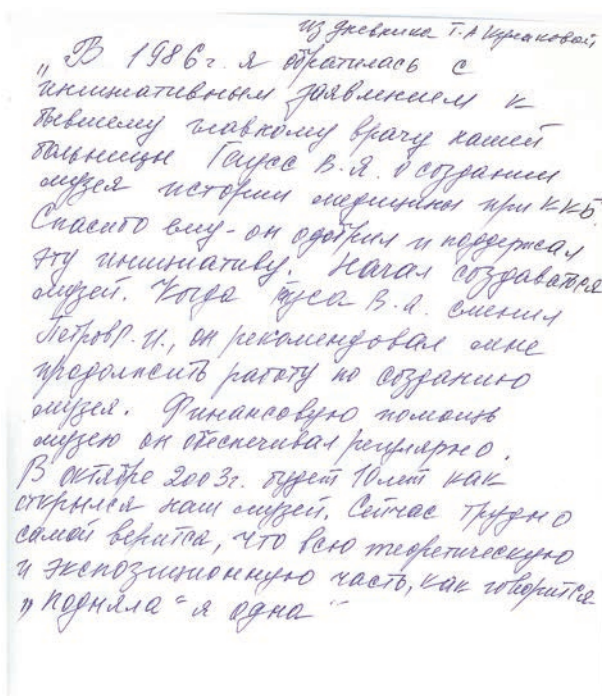 из дневника Т.А Кулаковой
„В 1986г. я обратилась с
инициативным заявлением к
бывшему главному врачу нашей
больницы Гаусс В.Я. о создании
музея истории медицины при ККБ.
Спасибо ему - он одобрил и поддержал
эту инициативу. Начал создаваться
музей. Когда Гусса В.Я. сменил
Петров Г.И., он рекомендовал мне
продолжить работу по созданию
музея. Финансовую помощь
музею он обеспечивал регулярно.
В октябре 2003г. будет 10 лет как
открылся наш музей. Сейчас трудно
самой верится, что всю теоретическую
и экспозиционную часть, как говорится
„подняла“ я одна“